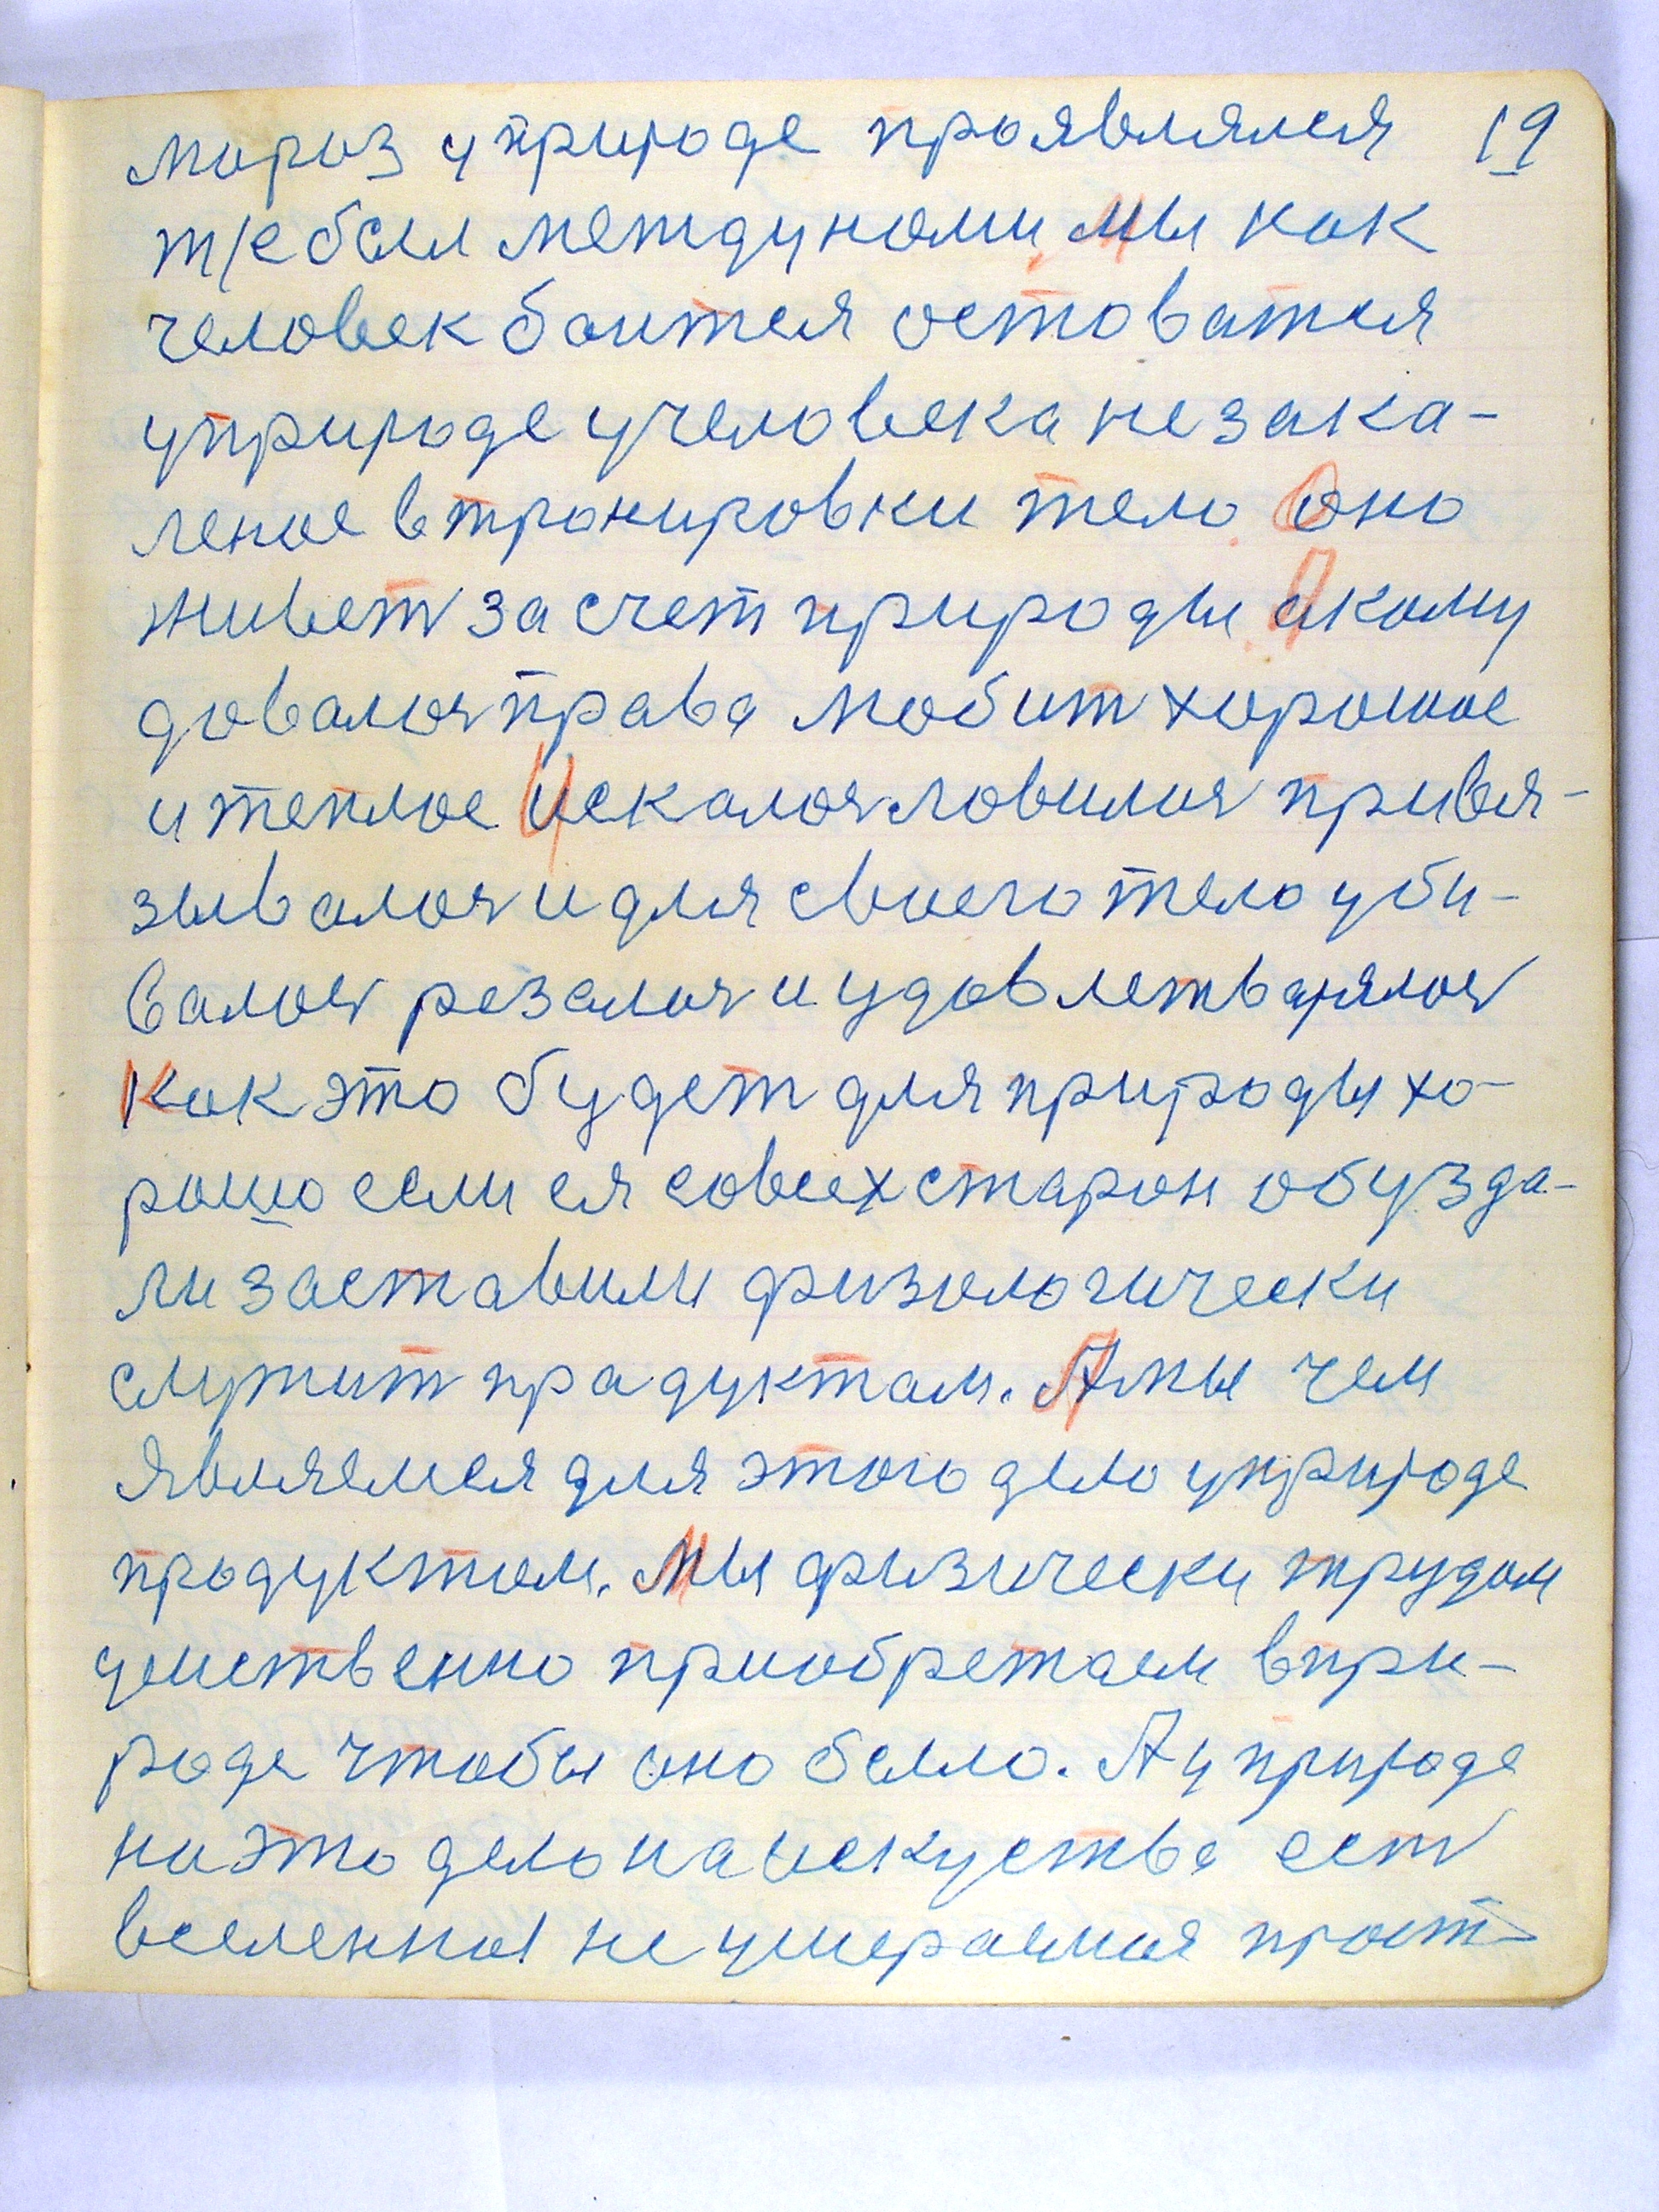 мороз у природе проявлялся 19
т/е был междунами. Мы как
человек боится остоватся
уприроде учеловека не зака-
леное в тронировки тело. Оно
живеть за счет природы. Акому
довалось права любить хорошое
и теплое Искалось ловилось привя-
зывалось и для своего тело уби-
валось резалось и удовлетварялось
Как это будет для природы хо-
рошо если ея совсех старон обузда-
ли заставили физиологически
служить прадуктам. Амы чем
являемся для этого дело уприроде
продуктом. Мы физически трудом
умственно приобретаем впри-
роде чтобы оно было. А у природе
на это дело на искуства есть
вселенная не умераемая прост-